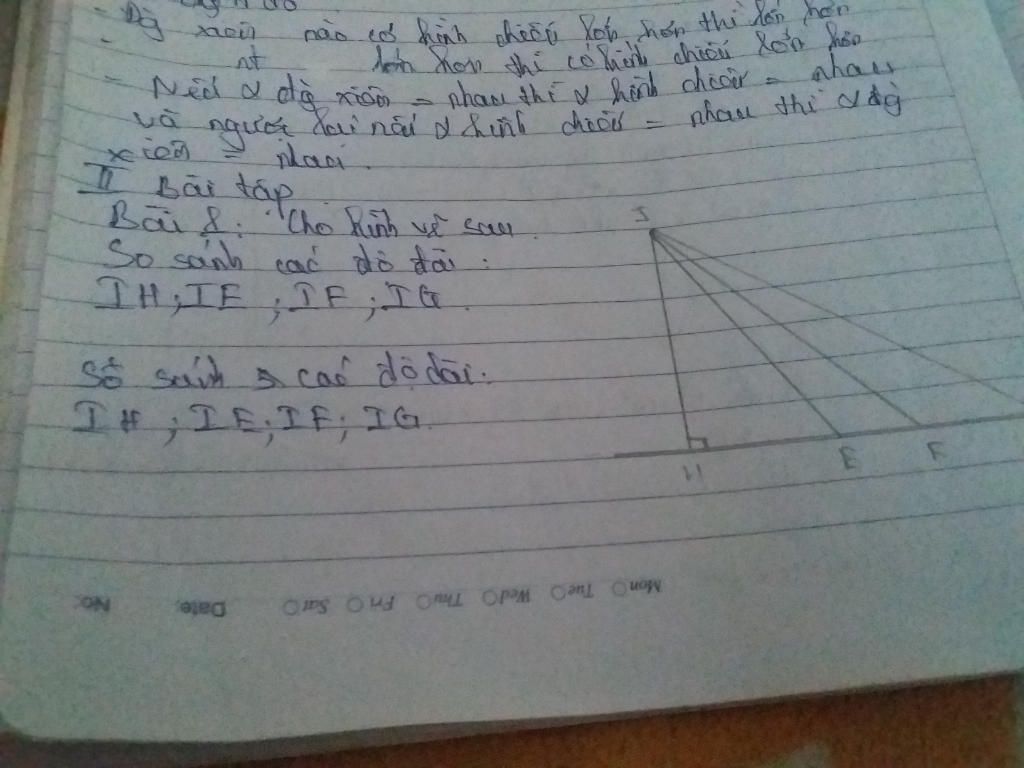 - Đg xiên nào có hình chiếu lớn hơn thì lớn hơn
- nt lớn hơn thì có hình chiếu lớn hơn
- Nếu 2 đg xiên = nhau thì 2 hình chiếu = nhau
và ngược lại nếu 2 hình chiếu = nhau thì 2 đg
xiên = nhau.
II Bài tập
Bài 8: Cho hình vẽ sau.
So sánh các độ dài:
IH; IE; IF; IG.
So sánh các độ dài:
IH; IE; IF; IG.
I
H E F
Mon Tue Wed Thu Fri Sat Date: No: